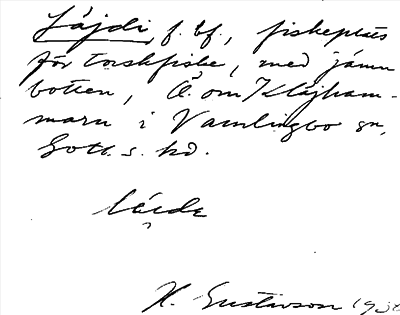 Läjdi, f. bf., fiskeplats
för torskfiske, med jämn
botten, Ö. om Kläjham-
marn i Vamlingbo sn,
Gotl. s. hd.
H. Gustavson 193